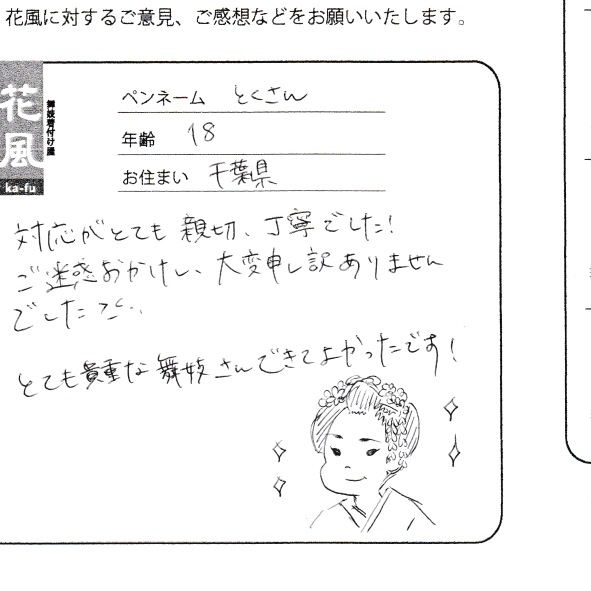 花風に対するご意見、ご感想などをお願いいたします。
花風
舞妓着付け屋
ka-fu
ペンネーム とくさん
年齢 18
お住まい 千葉県
対応がとても親切、丁寧でした!
ご迷惑おかけし、大変申し訳ありません
でした
とても貴重な舞妓さんできてよかったです!